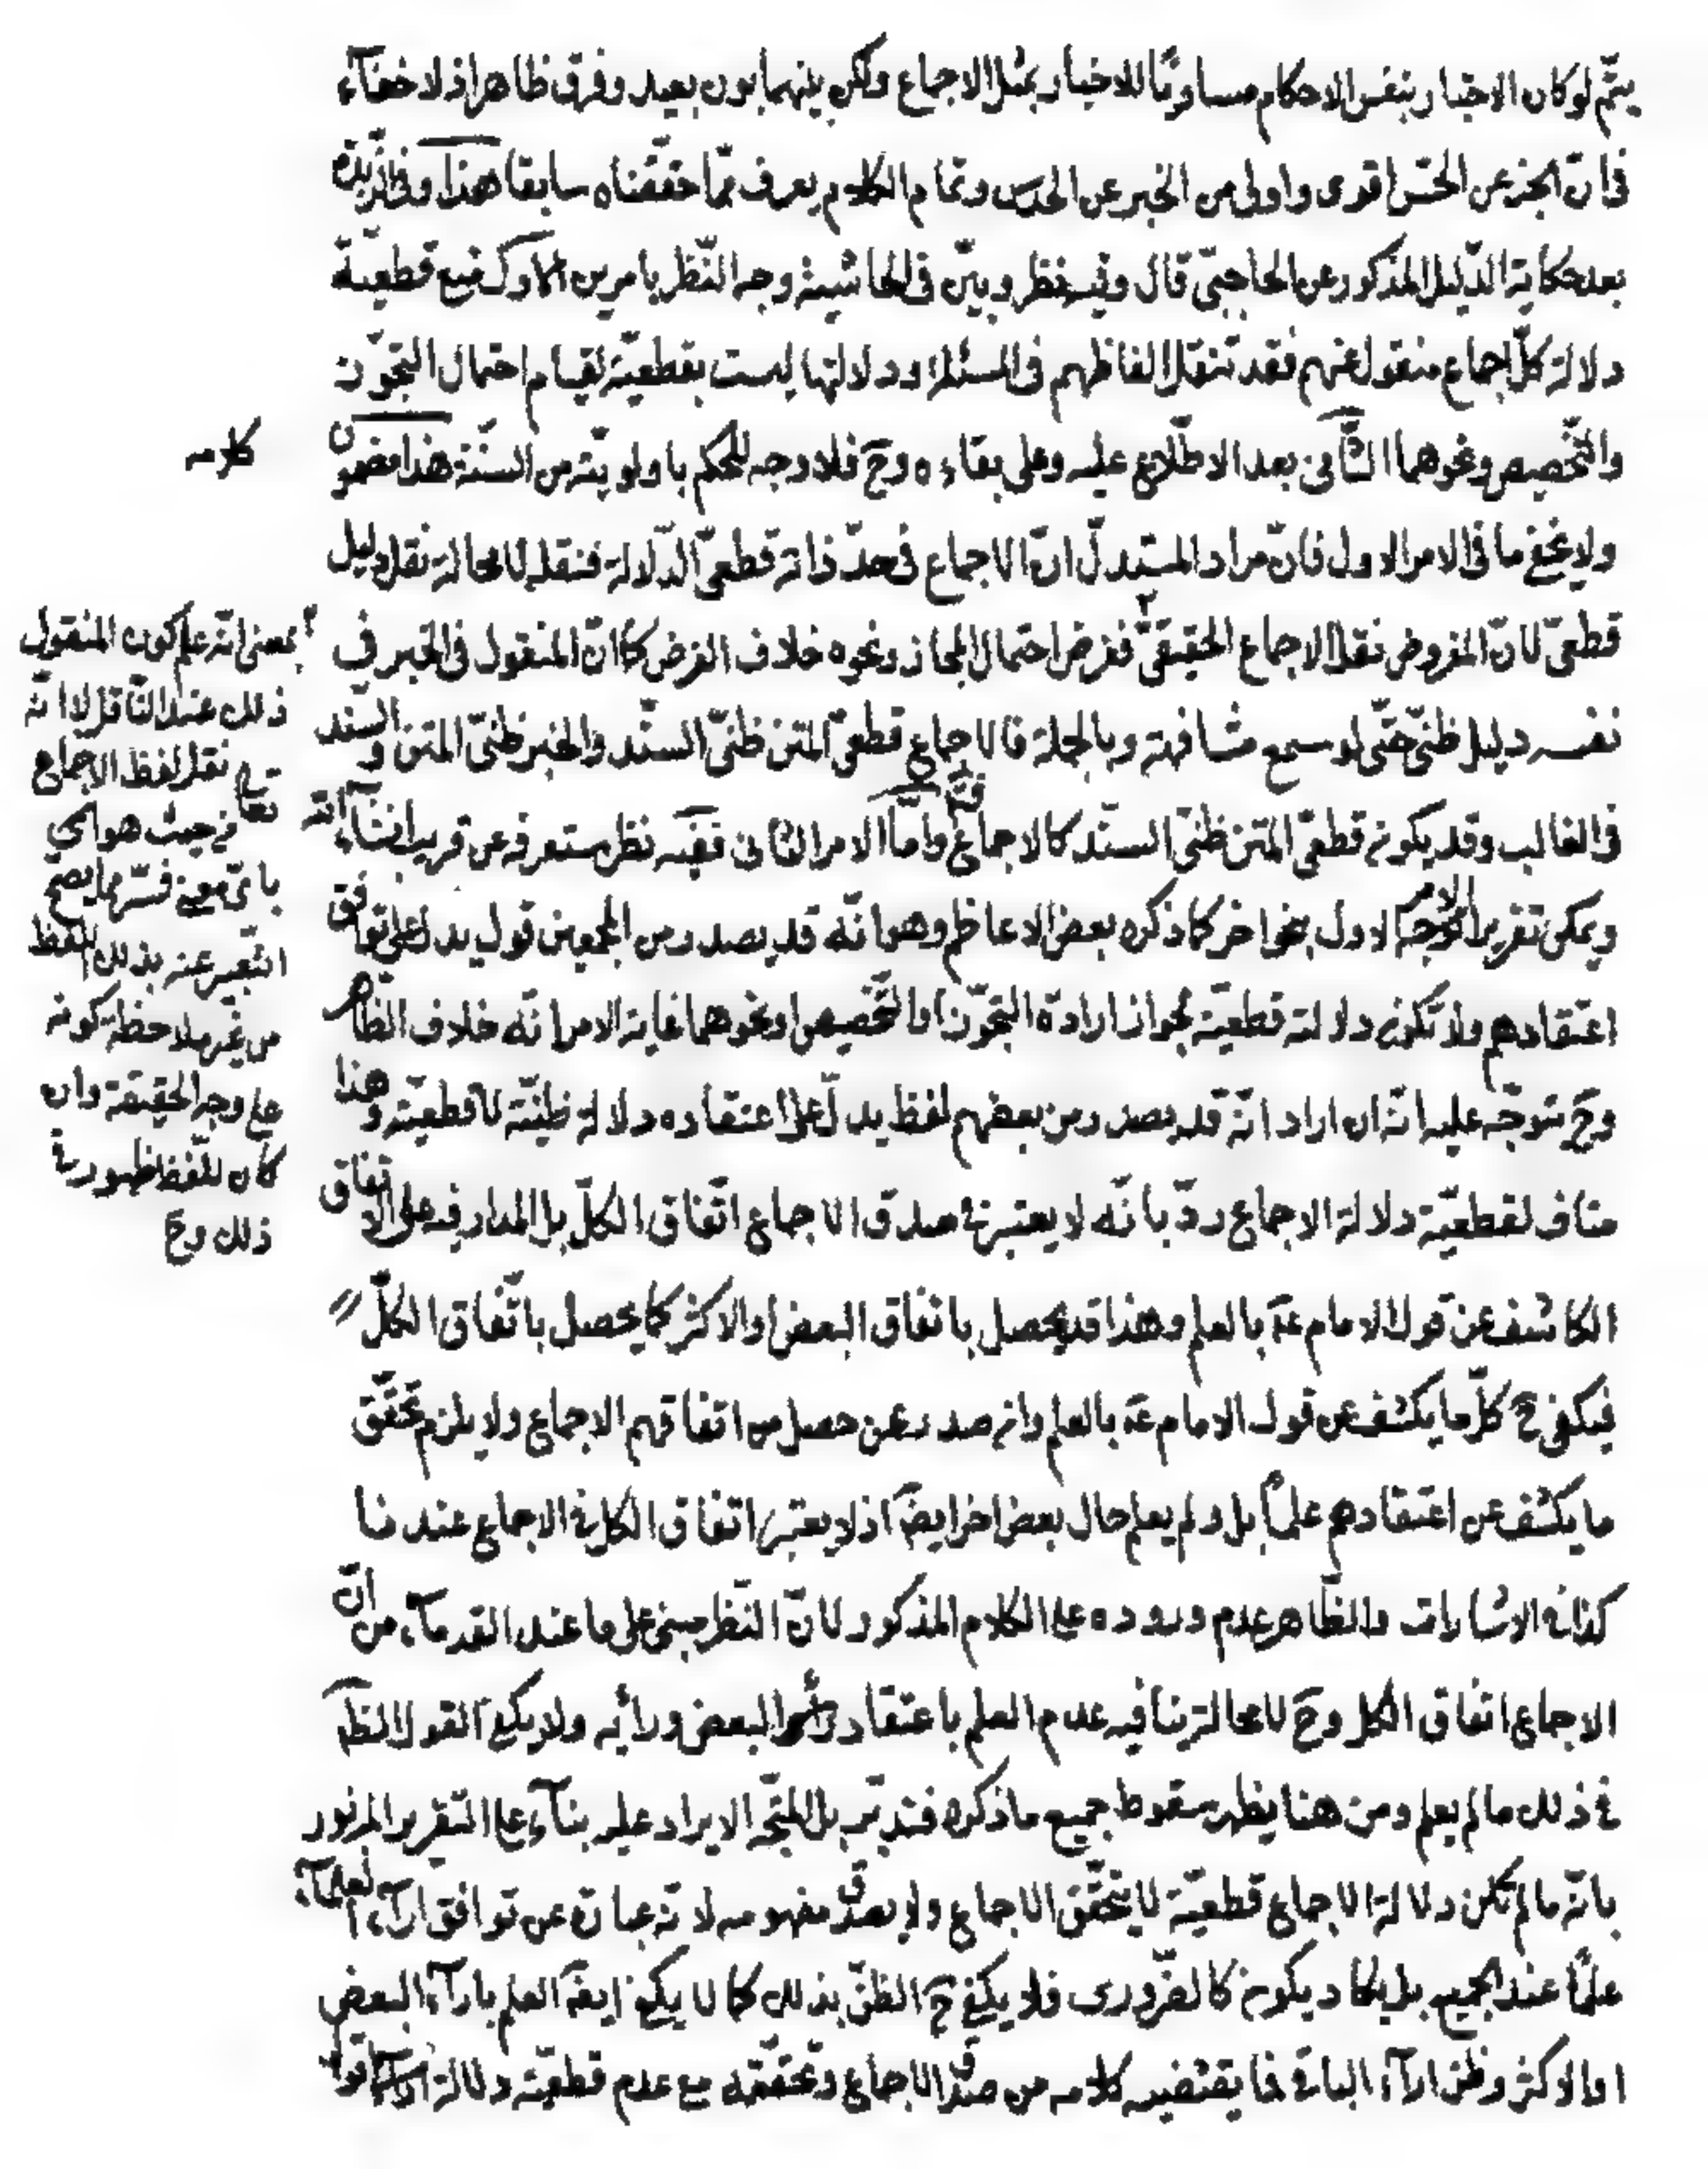 يتمّ لو كان الاخبار بنفس الاحكام مساويًا للاخبار بمثل الاجماع ولكن بينهما بون بعيد وفرق ظاهر اذ لا خفآء
فى انّ الخبر عن الحسّ اقوى واولى من الخبر عن الحدس وتمام الكلام يعرف ممّا حققناه سابقا هذا وفى الزبدة
بعد حكاية الدّليل المذكور عن الحاجبىّ قال وفيه نظر وبيّن فى الحاشية وجه النّظر بامرين الاوّل منع قطعيّة
دلالة كلّ اجماع منقول عنهم فقد تنقل الفاظهم فى المسئلة ودلالتها ليست بقطعيّة لقيام احتمال التجوّز
والتّخصيص ونحوهما الثّانى بعد الاطّلاع عليه وعلى بقاءه وح فلا وجه للحكم باولويّته من السنّة هذا مضمون
كلامه
ولا يخفى ما فى الامر الاول فانّ مراد المستدلّ انّ الاجماع فى حدّ ذاته قطعىّ الدّلالة فنقله لا محالة نقل دليل
قطعىّ لانّ المفروض نقل الاجماع الحقيقىّ ففرض احتمال المجاز ونحوه خلاف الفرض كما انّ المنقول فى الخبر فى
نفسه دليل ظنىّ حتّى لو سمع مشافهة وبالجملة فالاجماع قطعىّ المتن ظنىّ السنّد والخبر ظنىّ المتن والسند
فى الغالب وقد يكون قطعىّ المتن ظنىّ السنّد كالاجماع فتم وامّا الامر الثانى ففيه نظر ستعرفه عن قريب انشآء الله
تعالى
ويمكن تقرير الامر الاول بنحو اخر كما ذكره بعض الاعاظم وهو انّه قد يصدر من المجمعين قول يدل على توافق
اعتقادهم ولا تكون دلالته قطعيّة لجواز ارادة التجوّز او التّخصيص او نحوهما غاية الامر انّه خلاف الظّاهر
وح يتوجّه عليه انّه ان اراد انّه قد يصدر من بعضهم لفظ يدلّ على اعتقاده دلالة ظنيّة لا قطعيّة وهذا
مناف لقطعيّة دلالة الاجماع ردّ بانّه لا يعتبر فى صدق الاجماع اتّفاق الكلّ بل المدار فيه على الاتفاق
الكاشف عن قول الامام عه بالعلم وهذا قد يحصل باتفاق البعض او الاكثر كما يحصل باتّفاق الكلّ
فيكفى ح كلّ ما يكشف عن قول الامام عه بالعلم وانه صدر عمن حصل من اتفاقهم الاجماع ولا يلزم تحقّق
ما يكشف عن اعتقادهم علماً بل ولم يعلم حال بعض اخر ايضاً اذ لا يعتبر اتفاق الكل فى الاجماع عندنا
كذا فى الاشارات والظّاهر عدم وروده على الكلام المذكور لانّ النّظر مبنى على ما عند القدمآء من انّ
الاجماع اتفاق الكل وح لا محالة ينافيه عدم العلم باعتقاد البعض ورأيه ولا يكفى القول الظّاهر
فى ذلك ما لم يعلم ومن هنا يظهر سقوط جميع ما ذكره فتدبّر بل المتّجه الايراد عليه بنآء على التّقرير المزبور
بانّه ما لم تكن دلالة الاجماع قطعيّة لا يتحقّق الاجماع ولا يصدق مفهومه لانّه عبارة عن توافق ارآء العلمآء
علمًا عند الجميع بل يكاد يكون كالضّرورى فلا يكفى ح الظنّ بذلك كما لا يكفى ايضاً العلم بارآء البعض
او الاكثر وظنّ ارآء الباقى فما يقتضيه كلامه من صدق الاجماع وتحقّقه مع عدم قطعيّة دلالة
بمعنى انّه علم كون المنقول
ذلك عند النّاقل لا انّه
نقل لفظ الاجماع
من حيث هو اى
باىّ معنى فسّر بما يصح
التّعبير عنه بذلك اللّفظ
من غير ملاحظة كونه
على وجه الحقيقة وان
كان للّفظ ظهور فى
ذلك وح